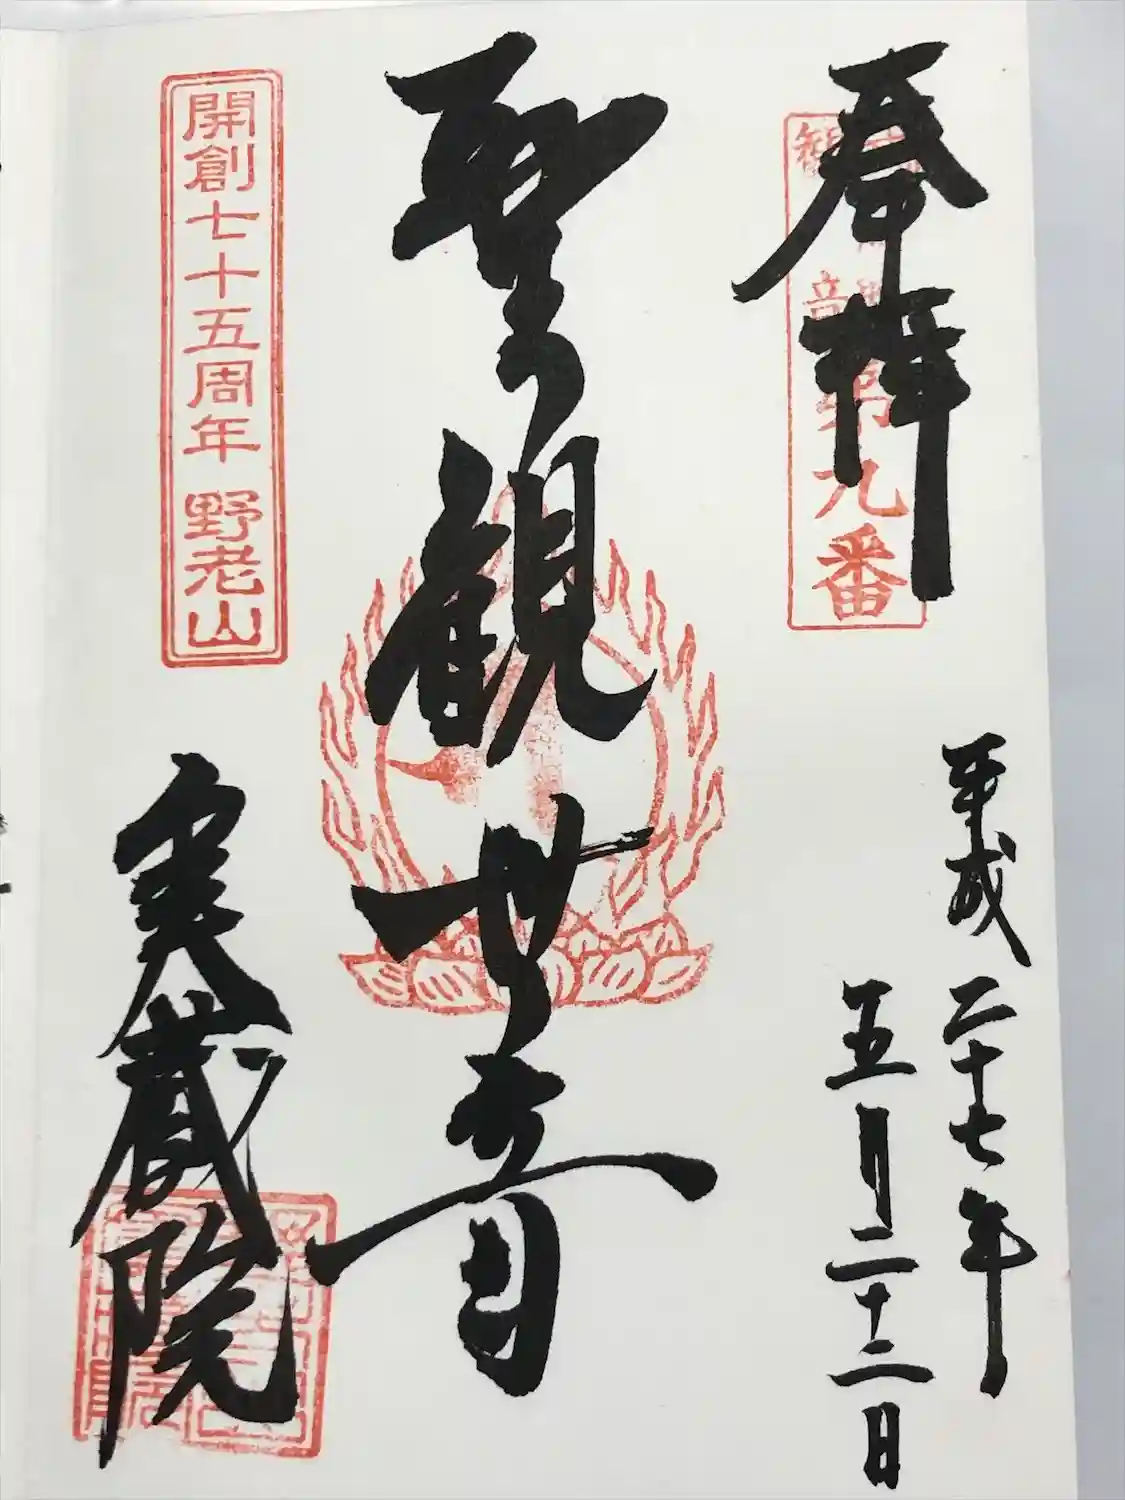 奉拝
第九番
平成二十七年
五月二十二日
聖観世音
開創七十五周年 野老山
実蔵院